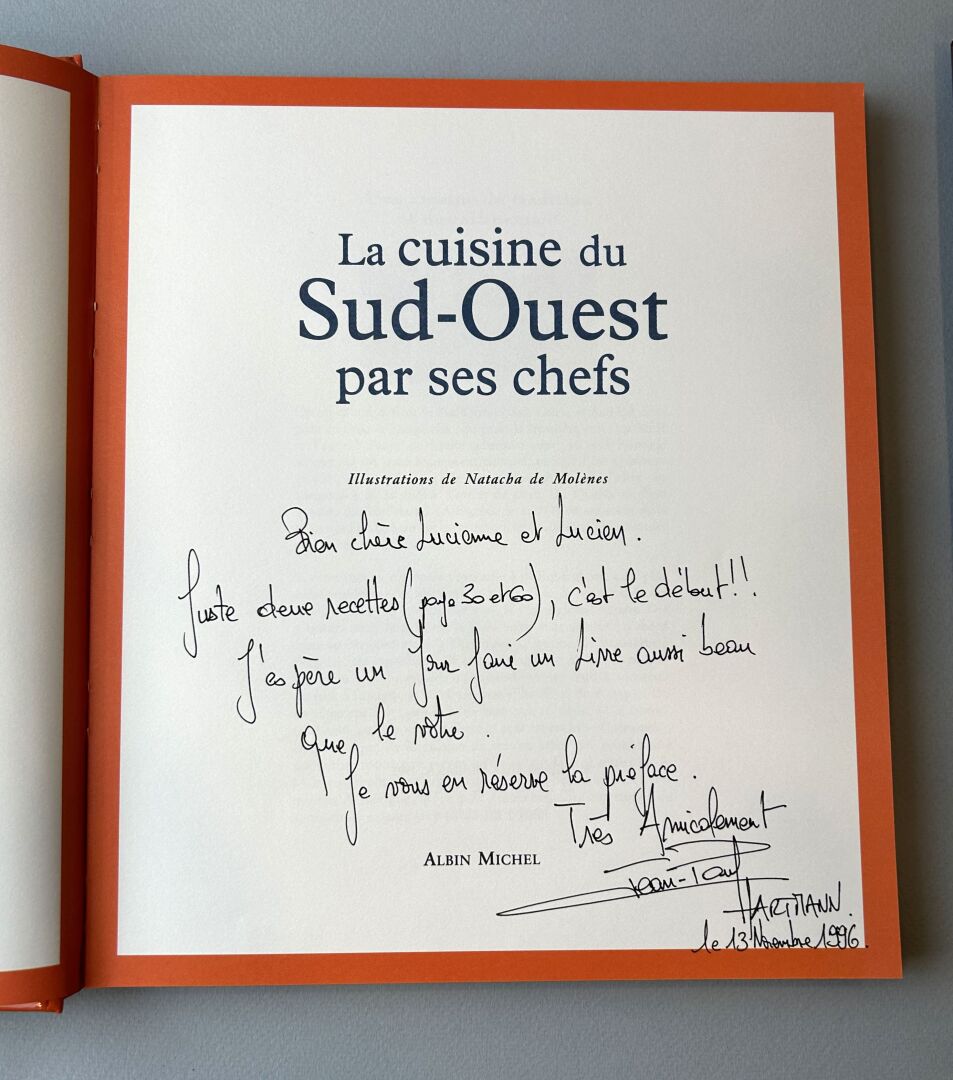 La cuisine du
Sud-Ouest
par ses chefs
Illustrations de Natacha de Molènes
Bien chère Lucienne et Lucien.
Juste deux recettes (page 30 et 60), c'est le début!!
J'espère un jour faire un livre aussi beau
que le votre.
Je vous en réserve la préface.
Très Amicalement
ALBIN MICHEL
Jean-Paul
HARTMANN.
le 13 Novembre 1996.